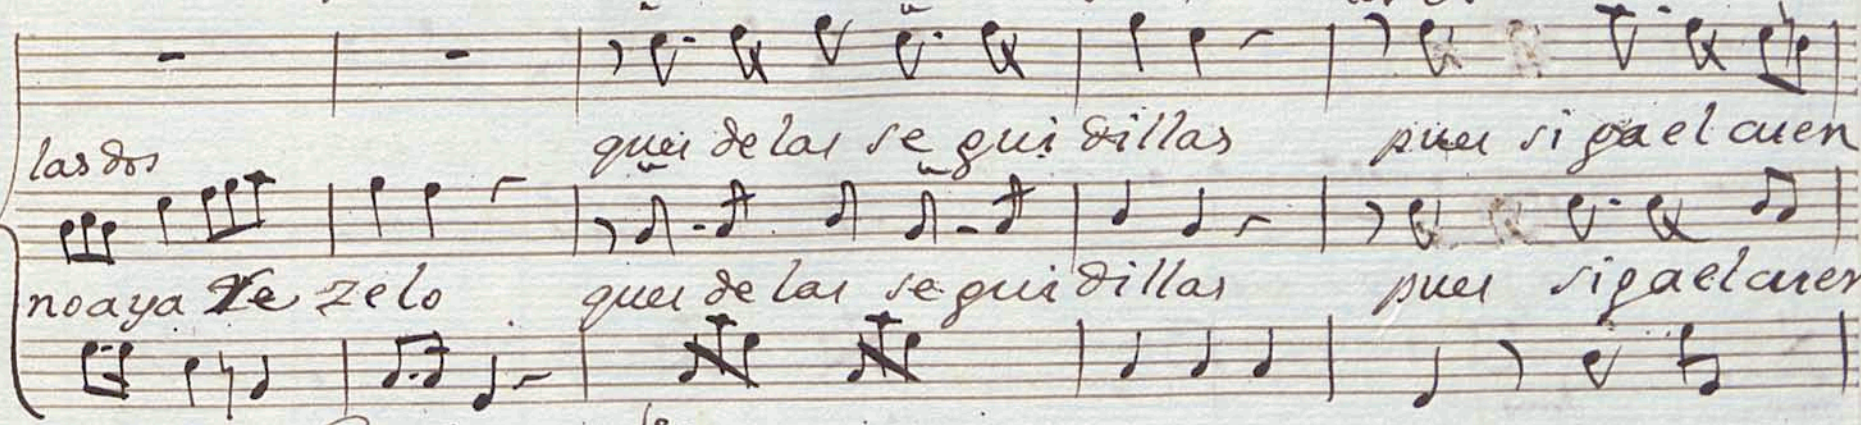 las dos
ques de las se gui dillas pues si ga el cuen
no aya Re zelo ques de las se gui dillas pues siga el cuen